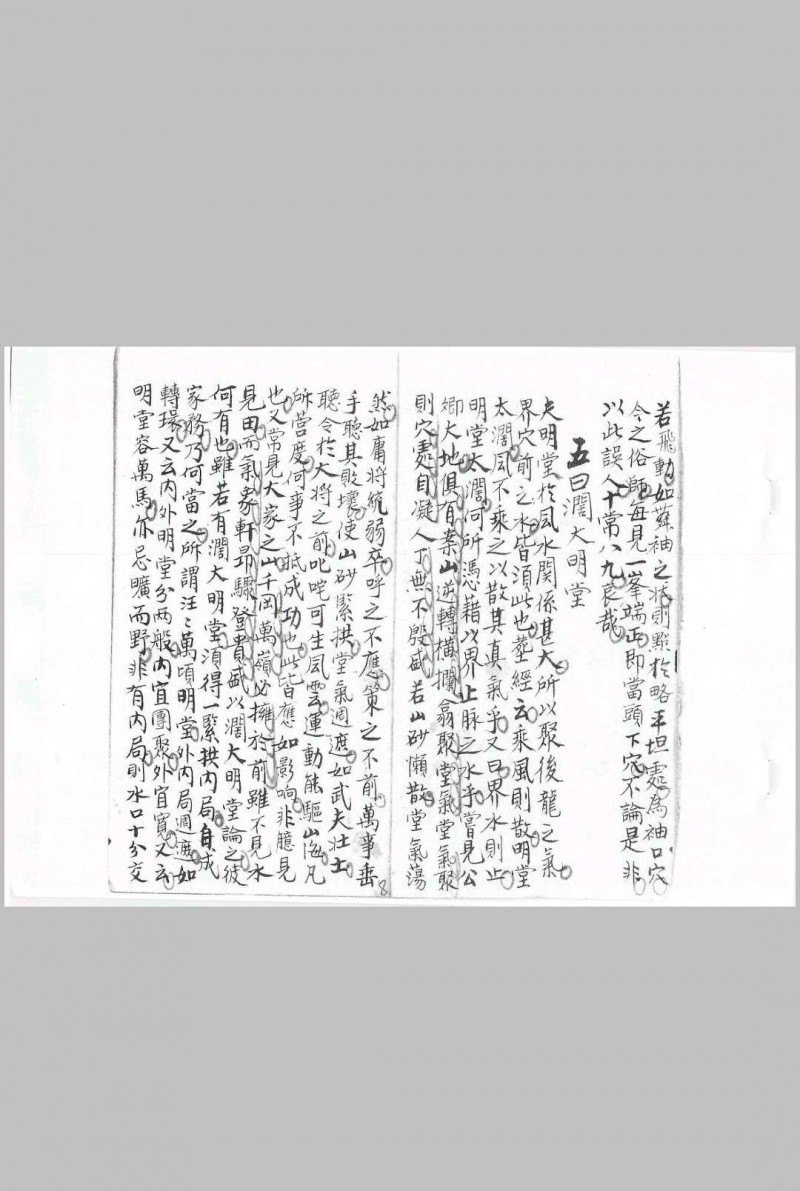 若飛動如舞袖之狀則點於略平坦處為袖口穴
今之俗師每見一峯端正即當頭下穴不論是非
以此誤人十常八九哀哉
五曰濶大明堂
夫明堂於風水関係甚大所以聚後龍之氣
界穴前之水皆須此也葬經云乘風則散明堂
太濶風不乘之以散其真氣乎又曰界水則止
明堂太濶何所憑藉以界止脉之水乎嘗見公
卿大地俱有案山逆轉橫攔翕聚堂氣堂氣聚
則穴處自凝人丁無不殷盛若山砂懶散堂氣蕩
然如庸将統弱卒呼之不應策之不前萬事垂
手聽其敗壞使山砂緊拱堂氣週遮如武夫壮士
聽令於大将之前叱咤可生風雲運動能驅山海凡
所营度何事不抵成功也此皆應如影响非臆見
也又常見大家之山千冈萬嶺必擁於前雖不見水
見田而氣象軒昂驟登貴盛以濶大明堂論之彼
何有也雖若有濶大明堂須得一緊拱内局自成
家務乃何當之所謂汪〻萬頃明堂外内局週遮如
轉環又云内外明堂分两般内宜團聚外宜寬又云
明堂容萬馬亦忌曠而野非有内局則水口十分交
8